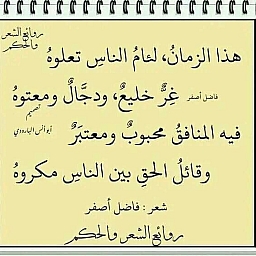 روائع الشعر
والحكم
هذا الزمانُ، لئامُ الناسِ تعلوهُ
غِرٌّ خليعٌ، ودجَّالٌ ومعتوهُ
فاضل أصفر
تصميم
أبو أنس البارودي
فيه المنافقُ محبوبٌ ومعتبَرٌ
وقائلُ الحقِ بين الناسِ مكروهُ
شعر : فاضل أصفر
روائع الشعر والحكم